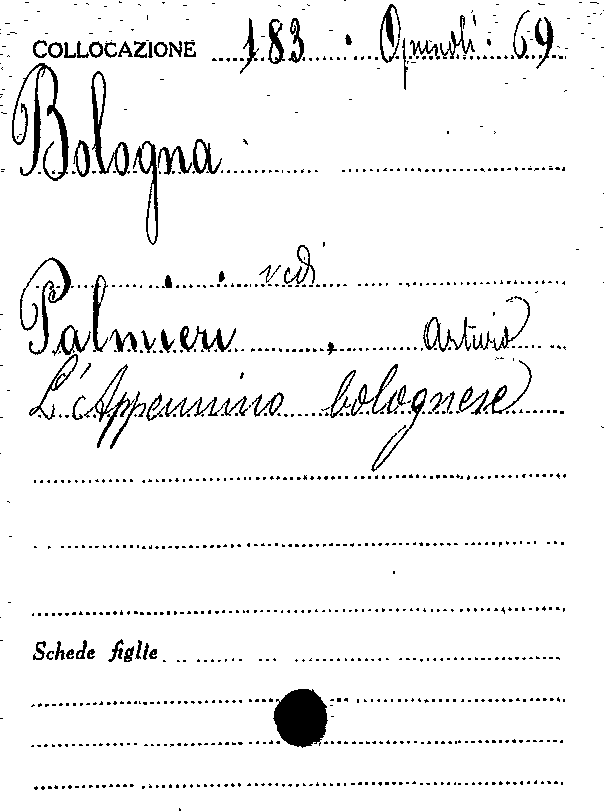 COLLOCAZIONE 183 · Opuscoli · 69
Bologna
vedi
Palmieri, Arturo
L'Appennino bolognese
Schede figlie